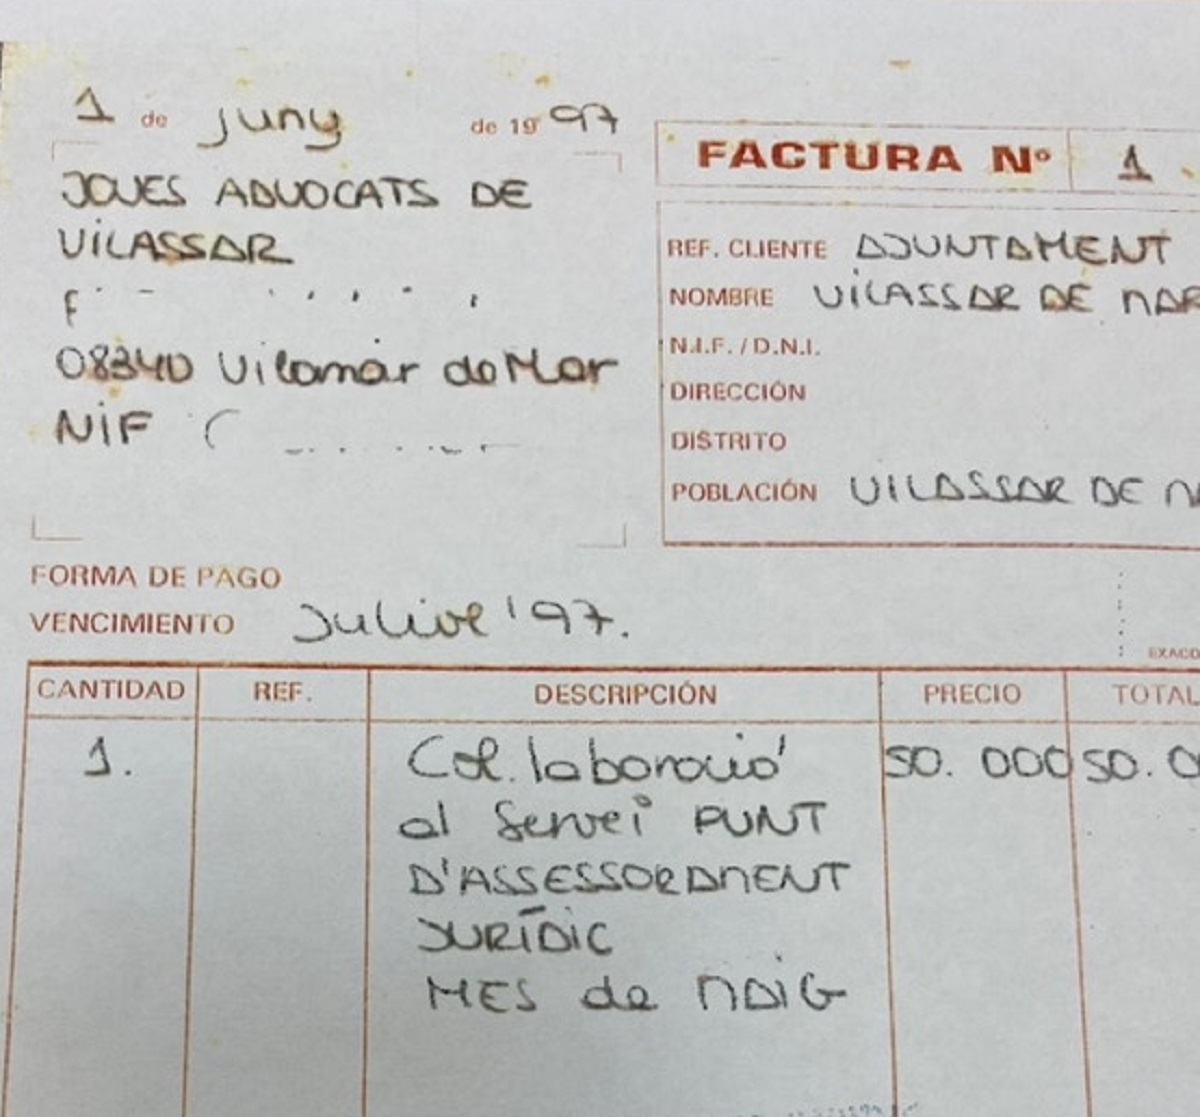 1 de juny de 1997
JOVES ADVOCATS DE
VILASSAR
08340 Vilamar de Mar
NIF
FACTURA Nº 1
REF. CLIENTE AJUNTAMENT
NOMBRE VILASSAR DE MAR
N.I.F. / D.N.I.
DIRECCIÓN
DISTRITO
POBLACIÓN VILASSAR DE
FORMA DE PAGO
VENCIMIENTO Juliol '97.
CANTIDAD REF. DESCRIPCIÓN PRECIO TOTAL
1. Col.laboració 50.000 50.0
al Servei PUNT
D'ASSESSORAMENT
JURÍDIC
MES de MAIG